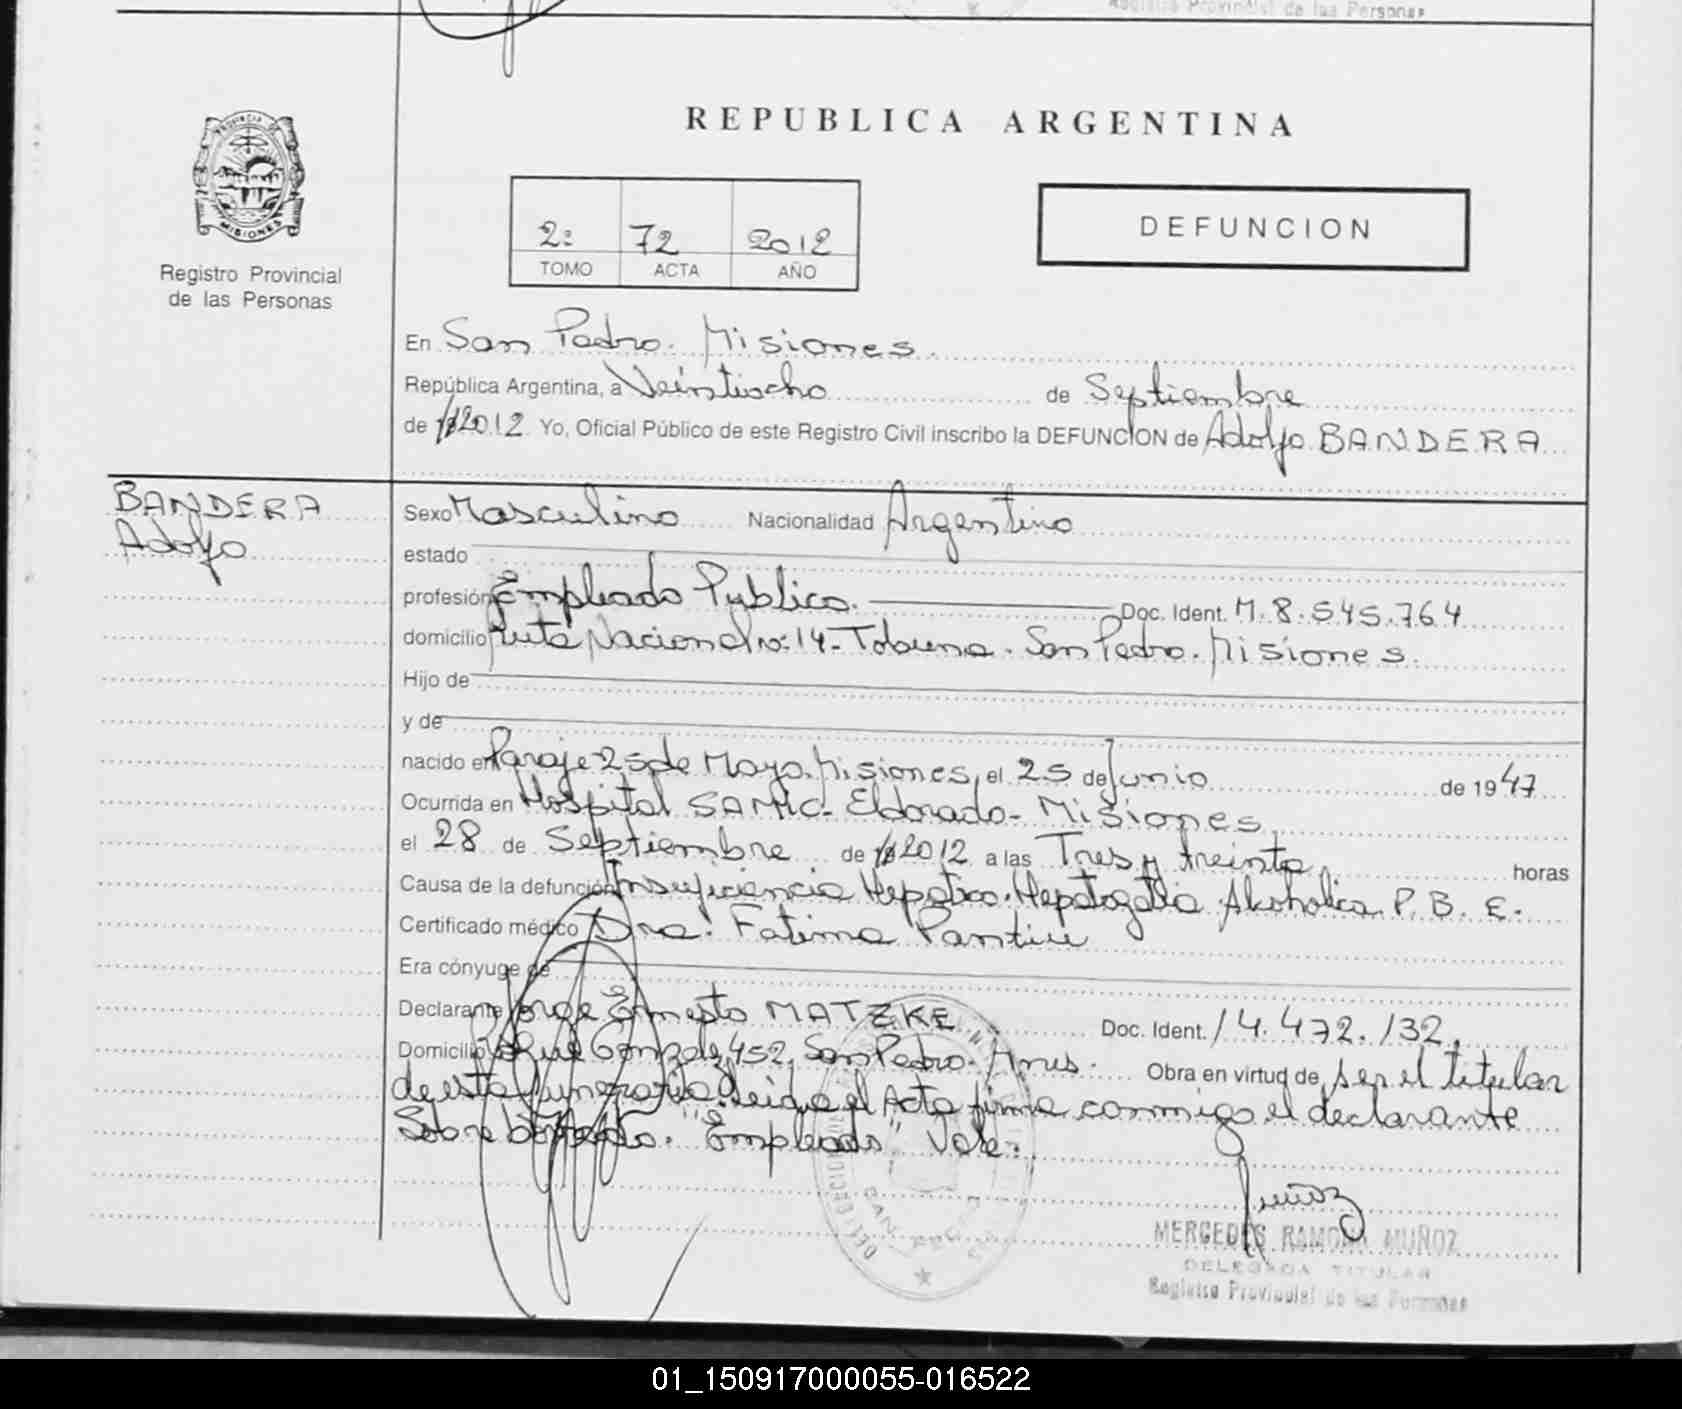 Registro Provincial de las Personas
REPUBLICA ARGENTINA
PROVINCIA DE
MISIONES
Registro Provincial
de las Personas
2: 72 2012
TOMO ACTA AÑO
DEFUNCION
En San Pedro. Misiones.
República Argentina, a Veintiocho de Septiembre
de 2012 Yo, Oficial Público de este Registro Civil inscribo la DEFUNCION de Adolfo BANDERA
BANDERA
Adolfo
Sexo Masculino Nacionalidad Argentino
estado
profesión Empleado Publico. Doc. Ident. M. 8.545.764
domicilio Ruta Nacional Nro: 14 - Tobuna. San Pedro. Misiones.
Hijo de
y de
nacido en Paraje 25 de Mayo. Misiones, el 25 de Junio de 1947
Ocurrida en Hospital SAMIC - Eldorado - Misiones,
el 28 de Septiembre de 2012 a las Tres y treinta, horas
Causa de la defunción Insuficiencia Hepatica. Alcoholica P. B. E.
Certificado médico Dra: Fatima
Era cónyuge de
Declarante Jorge Ernesto MATZKE Doc. Ident. 14.472.132.
Domicilio 452, San Pedro. Mnes. Obra en virtud de ser el titular
de esta funeraria. Leida el Acta firma conmigo el declarante
Sobre "Empleado" Vale:
Muñoz
MERCEDES RAMONA MUÑOZ
DELEGADA TITULAR
Registro Provincial de las Personas
01_150917000055-016522